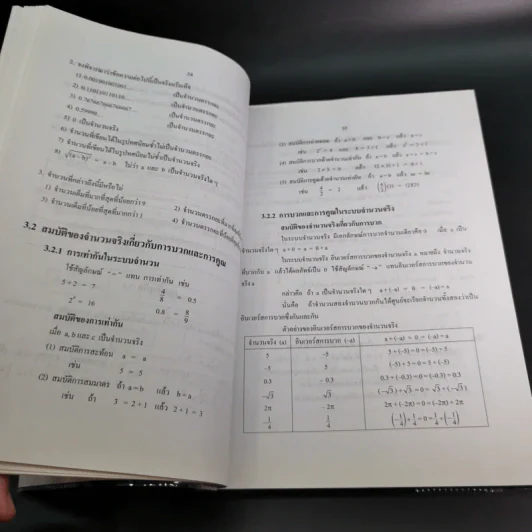 54
2. จงพิจารณาว่าข้อความต่อไปนี้เป็นจริงหรือเท็จ
1) 0.001001001001... เป็นจำนวนตรรกยะ
2) 0.110110110110... เป็นจำนวนตรรกยะ
3) 0.767667666766667... เป็นจำนวนตรรกยะ
4) 0.59999... เป็นจำนวนตรรกยะ
5) 0 เป็นจำนวนจริง
6) จำนวนที่เขียนได้ในรูปทศนิยมซ้ำไม่เป็นจำนวนตรรกยะ
7) จำนวนที่เขียนได้ในรูปทศนิยมไม่ซ้ำเป็นจำนวนตรรกยะ
8) √(a − b)² = a − b ไม่ว่า a และ b เป็นจำนวนจริงใดๆ
3. จำนวนที่กล่าวถึงนี้มีหรือไม่
1) จำนวนเต็มที่มากที่สุดที่น้อยกว่า 0 2) จำนวนตรรกยะที่
3) จำนวนเต็มที่น้อยที่สุดที่มากกว่า 1 4) จำนวนตรรกยะที่
3.2 สมบัติของจำนวนจริงเกี่ยวกับการบวกและการคูณ
3.2.1 การเท่ากันในระบบจำนวน
ใช้สัญลักษณ์ "=" แทน การเท่ากัน เช่น
5 + 2 = 7 4/8 = 0.5
2⁴ = 16 0.8 = 8/9
สมบัติของการเท่ากัน
เมื่อ a, b และ c เป็นจำนวนจริง
(1) สมบัติการสะท้อน a = a
เช่น 5 = 5
(2) สมบัติการสมมาตร ถ้า a = b แล้ว b = a
เช่น ถ้า 3 = 2 + 1 แล้ว 2 + 1 = 3
55
3.2.2 การบวกและการคูณในระบบจำนวนจริง
สมบัติของจำนวนจริงเกี่ยวกับการบวก
ในระบบจำนวนจริง มีเอกลักษณ์การบวกจำนวนเดียวคือ 0 เมื่อ a เป็น
จำนวนจริงใดๆ a + 0 = a = 0 + a
ในระบบจำนวนจริง อินเวอร์สการบวกของจำนวนจริง a หมายถึง จำนวนจริง
ที่บวกกับ a แล้วได้ผลลัพธ์เป็น 0 ใช้สัญลักษณ์ "-a" แทนอินเวอร์สการบวกของจำนวน
จริง a
กล่าวคือ ถ้า a เป็นจำนวนจริงใดๆ a + (-a) = 0 = (-a) + a
นั่นคือ ถ้าจำนวนสองจำนวนบวกกันได้ศูนย์จะเรียกจำนวนทั้งสองว่าเป็น
อินเวอร์สการบวกซึ่งกันและกัน
ตัวอย่างของอินเวอร์สการบวกของจำนวนจริง
จำนวนจริง (a) อินเวอร์สการบวก (-a) a + (-a) = 0 = (-a) + a
5 -5 5 + (-5) = 0 = (-5) + 5
-5 5 (-5) + 5 = 0 = 5 + (-5)
0.3 - 0.3 0.3 + (-0.3) = 0 = (-0.3) + 0.3
-√3 √3 (-√3) + √3 = 0 = √3 + (-√3)
2π - 2π 2π + (-2π) = 0 = (-2π) + 2π
-1/4 1/4 (-1/4) + 1/4 = 0 = 1/4 + (-1/4)